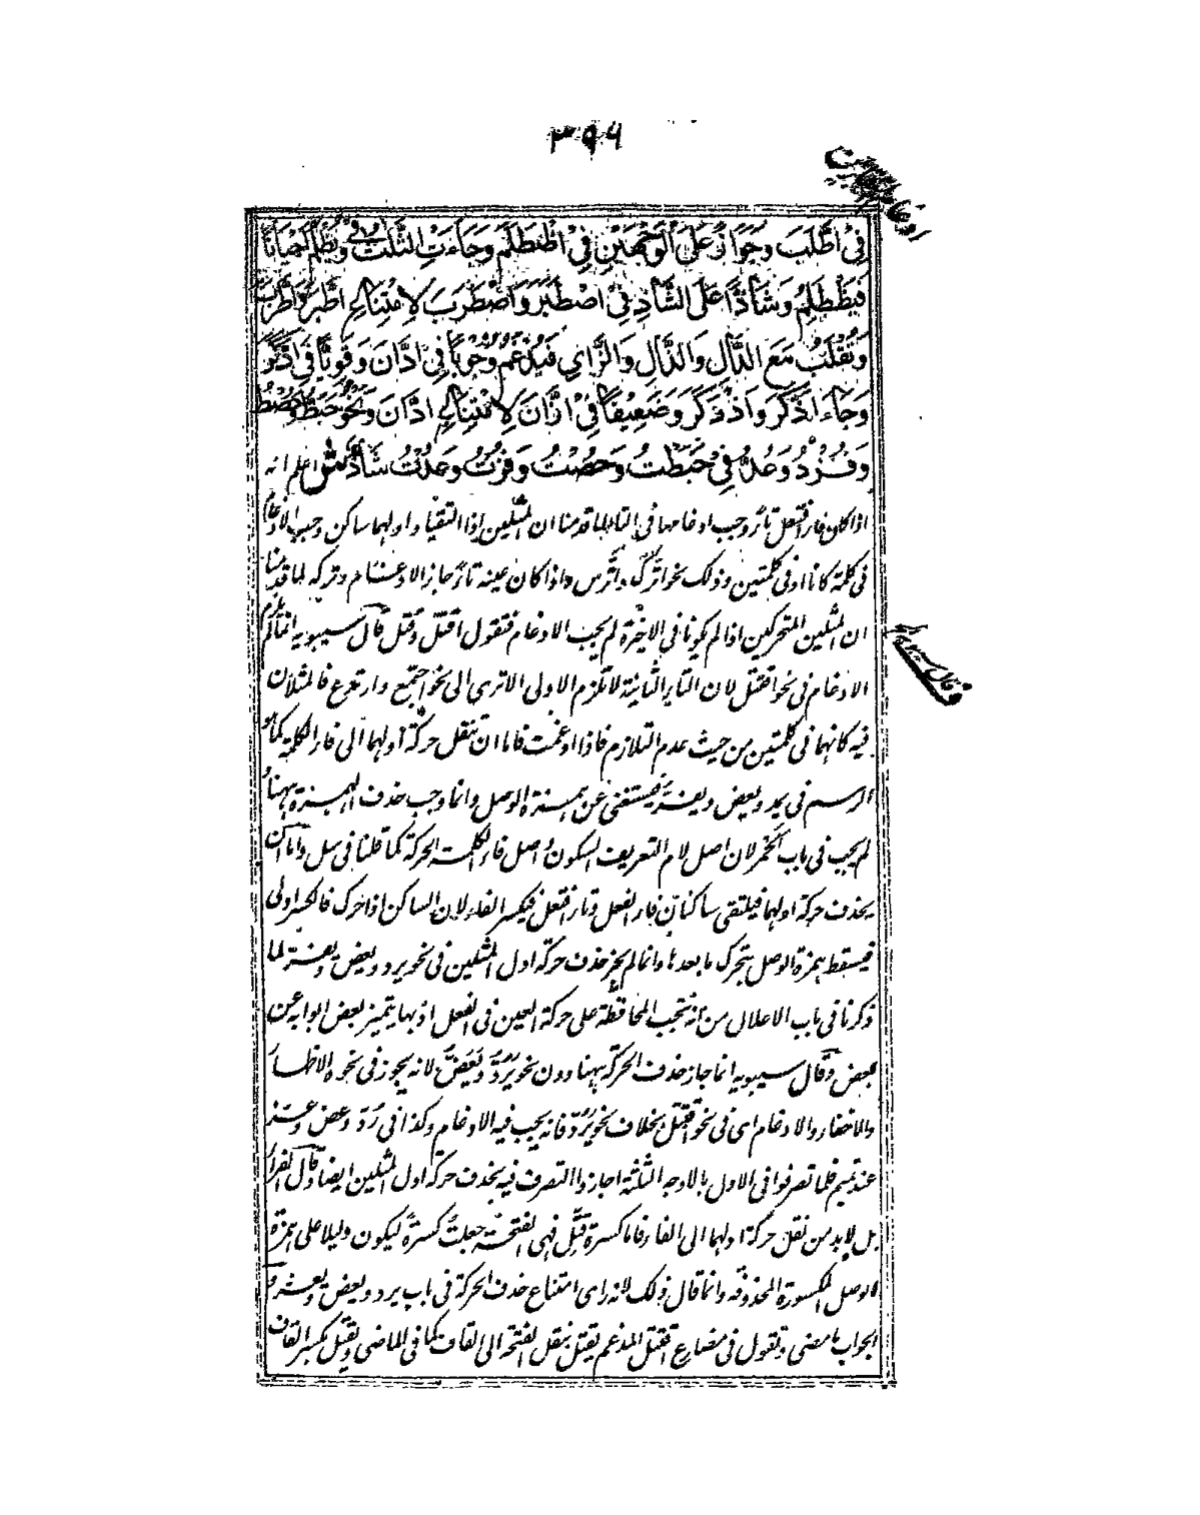 ٣٩٦
فِيْ اطَّلَبَ وَجَوَازًا عَلَى الْوَجْهَيْنِ فِيْ اظْطَلَمَ وَجَاءَتِ الثَّلٰثُ فِيْ وَيُظْلَمُ اَحْيَانًا
فَيَظْطَلِمُ وَشَاذًّا عَلَى الشَّاذِّ فِيْ اصْطَبَرَ وَاضْطَرَبَ لِامْتِنَاعِ اطَّبَرَ وَاطَّرَبَ
وَتُقْلَبُ مَعَ الدَّالِ وَالذَّالِ وَالزَّايِ دَالًا فَيُدْغَمُ وُجُوْبًا فِيْ ادَّانَ وَقَوِيًّا فِيْ ادَّكَرَ
وَجَاءَ اذَّكَرَ وَاذْدَكَرَ وَضَعِيْفًا فِيْ ازَّانَ لِامْتِنَاعِ ادَّانَ وَنَحْوُ خَبَطُّ وَحُصْطُ
وَفُزْدُ وَعُدُّ فِيْ خَبَطْتُ وَحُصْتُ وَفُزْتُ وَعُدْتُ شَاذٌّ ش اعلم انه
اذا كان فاء افتعل تاءً وجب ادغامها فى التاء لما قدمنا ان المثلين اذا التقيا واولهما ساكن وجب الادغام
فى كلمة كانا اوفى كلمتين وذلك نحو اتّرك واتّرس واذا كان عينه تاءً جاز الادغام وتركه لما قدمنا
ان المثلين المتحركين اذا لم يكونا فى الاخرة لم يجب الادغام فتقول اقتتل وقتّل قال سيبويه انما لم يلزم
الادغام فى نحو اقتتل لان التاء الثانية لا تلزم الاولى الا ترى الى نحو اجتمع وارتدع فالمثلان
فيه كانهما فى كلمتين من حيث عدم التلازم فاذا ادغمت فاما ان تنقل حركة اولهما الى فاء الكلمة كما هو
الرسم فى يمد ويعض ويفر فيستغنى عن همزة الوصل وانما وجب حذف الهمزة ههنا و
لم يجب فى باب الحمر لان اصل لام التعريف السكون واصل فاء الكلمة الحركة كما قلنا فى سل واما ان
يحذف حركة اولهما فيلتقى ساكنان فاء الفعل وتاء افتعل فيكسر الفاء لان الساكن اذا حرك فالكسر اولى
فيسقط همزة الوصل بتحرك ما بعدها وانما لم يجز حذف حركة اول المثلين فى نحو يرد ويعض ويفر لما
ذكرنا فى باب الاعلال من انه تجب المحافظة على حركة العين فى الفعل اذ بها يتميز بعض ابوابه عن
بعض وقال سيبويه انما جاز حذف الحركة ههنا دون نحو يَرُدّ ويَعَضّ لانه يجوز فى نحوه الاظهار
والاخفاء والادغام اى فى نحو اقتتل بخلاف نحو يردّ فانه يجب فيه الادغام وكذا فى رُدّ وعض وفر
عند تميم فلما تصرفوا فى الاول بالاوجه الثلثة اجازوا التصرف فيه بحذف حركة اول المثلين ايضا وقال الفراء
بل لابد من نقل حركة اولهما الى الفاء فاما كسرة قِتّل فهى الفتحة جعلت كسرة ليكون دليلا على همزة
الوصل المكسورة المحذوفة وانما قال ذلك لانه راى امتناع حذف الحركة فى باب يرد ويعض ويفر و
الجواب ما مضى وتقول فى مضارع اقتتل المدغم يقتل بنقل الفتحة الى القاف كما فى الماضى ويقتل بكسر القاف
قال سيبويه